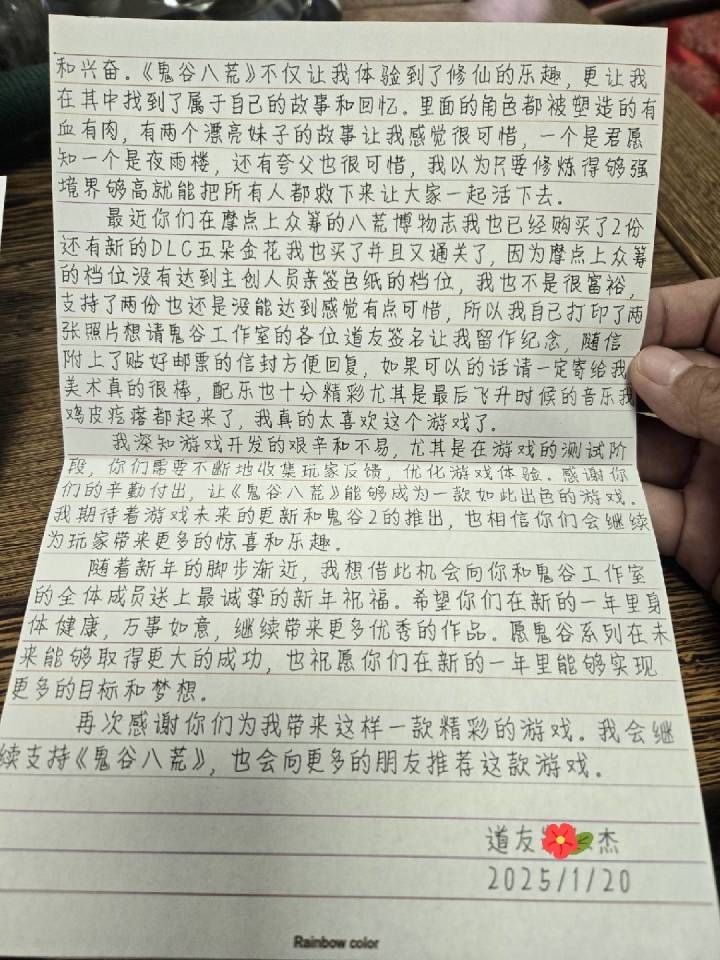 和兴奋。《鬼谷八荒》不仅让我体验到了修仙的乐趣，更让我
在其中找到了属于自己的故事和回忆。里面的角色都被塑造的有
血有肉，有两个漂亮妹子的故事让我感觉很可惜，一个是君愿
知一个是夜雨楼，还有夸父也很可惜，我以为只要修炼得够强
境界够高就能把所有人都救下来让大家一起活下去。
最近你们在摩点上众筹的八荒博物志我也已经购买了2份
还有新的DLC五朵金花我也买了并且又通关了，因为摩点上众筹
的档位没有达到主创人员亲签色纸的档位，我也不是很富裕，
支持了两份也还是没能达到感觉有点可惜，所以我自己打印了两
张照片想请鬼谷工作室的各位道友签名让我留作纪念，随信
附上了贴好邮票的信封方便回复，如果可以的话请一定寄给我
美术真的很棒，配乐也十分精彩尤其是最后飞升时候的音乐我
鸡皮疙瘩都起来了，我真的太喜欢这个游戏了。
我深知游戏开发的艰辛和不易，尤其是在游戏的测试阶
段，你们需要不断地收集玩家反馈，优化游戏体验。感谢你
们的辛勤付出，让《鬼谷八荒》能够成为一款如此出色的游戏。
我期待着游戏未来的更新和鬼谷2的推出，也相信你们会继续
为玩家带来更多的惊喜和乐趣。
随着新年的脚步渐近，我想借此机会向你和鬼谷工作室
的全体成员送上最诚挚的新年祝福。希望你们在新的一年里身
体健康，万事如意，继续带来更多优秀的作品。愿鬼谷系列在未
来能够取得更大的成功，也祝愿你们在新的一年里能够实现
更多的目标和梦想。
再次感谢你们为我带来这样一款精彩的游戏。我会继
续支持《鬼谷八荒》，也会向更多的朋友推荐这款游戏。
道友杰
2025/1/20
Rainbow color